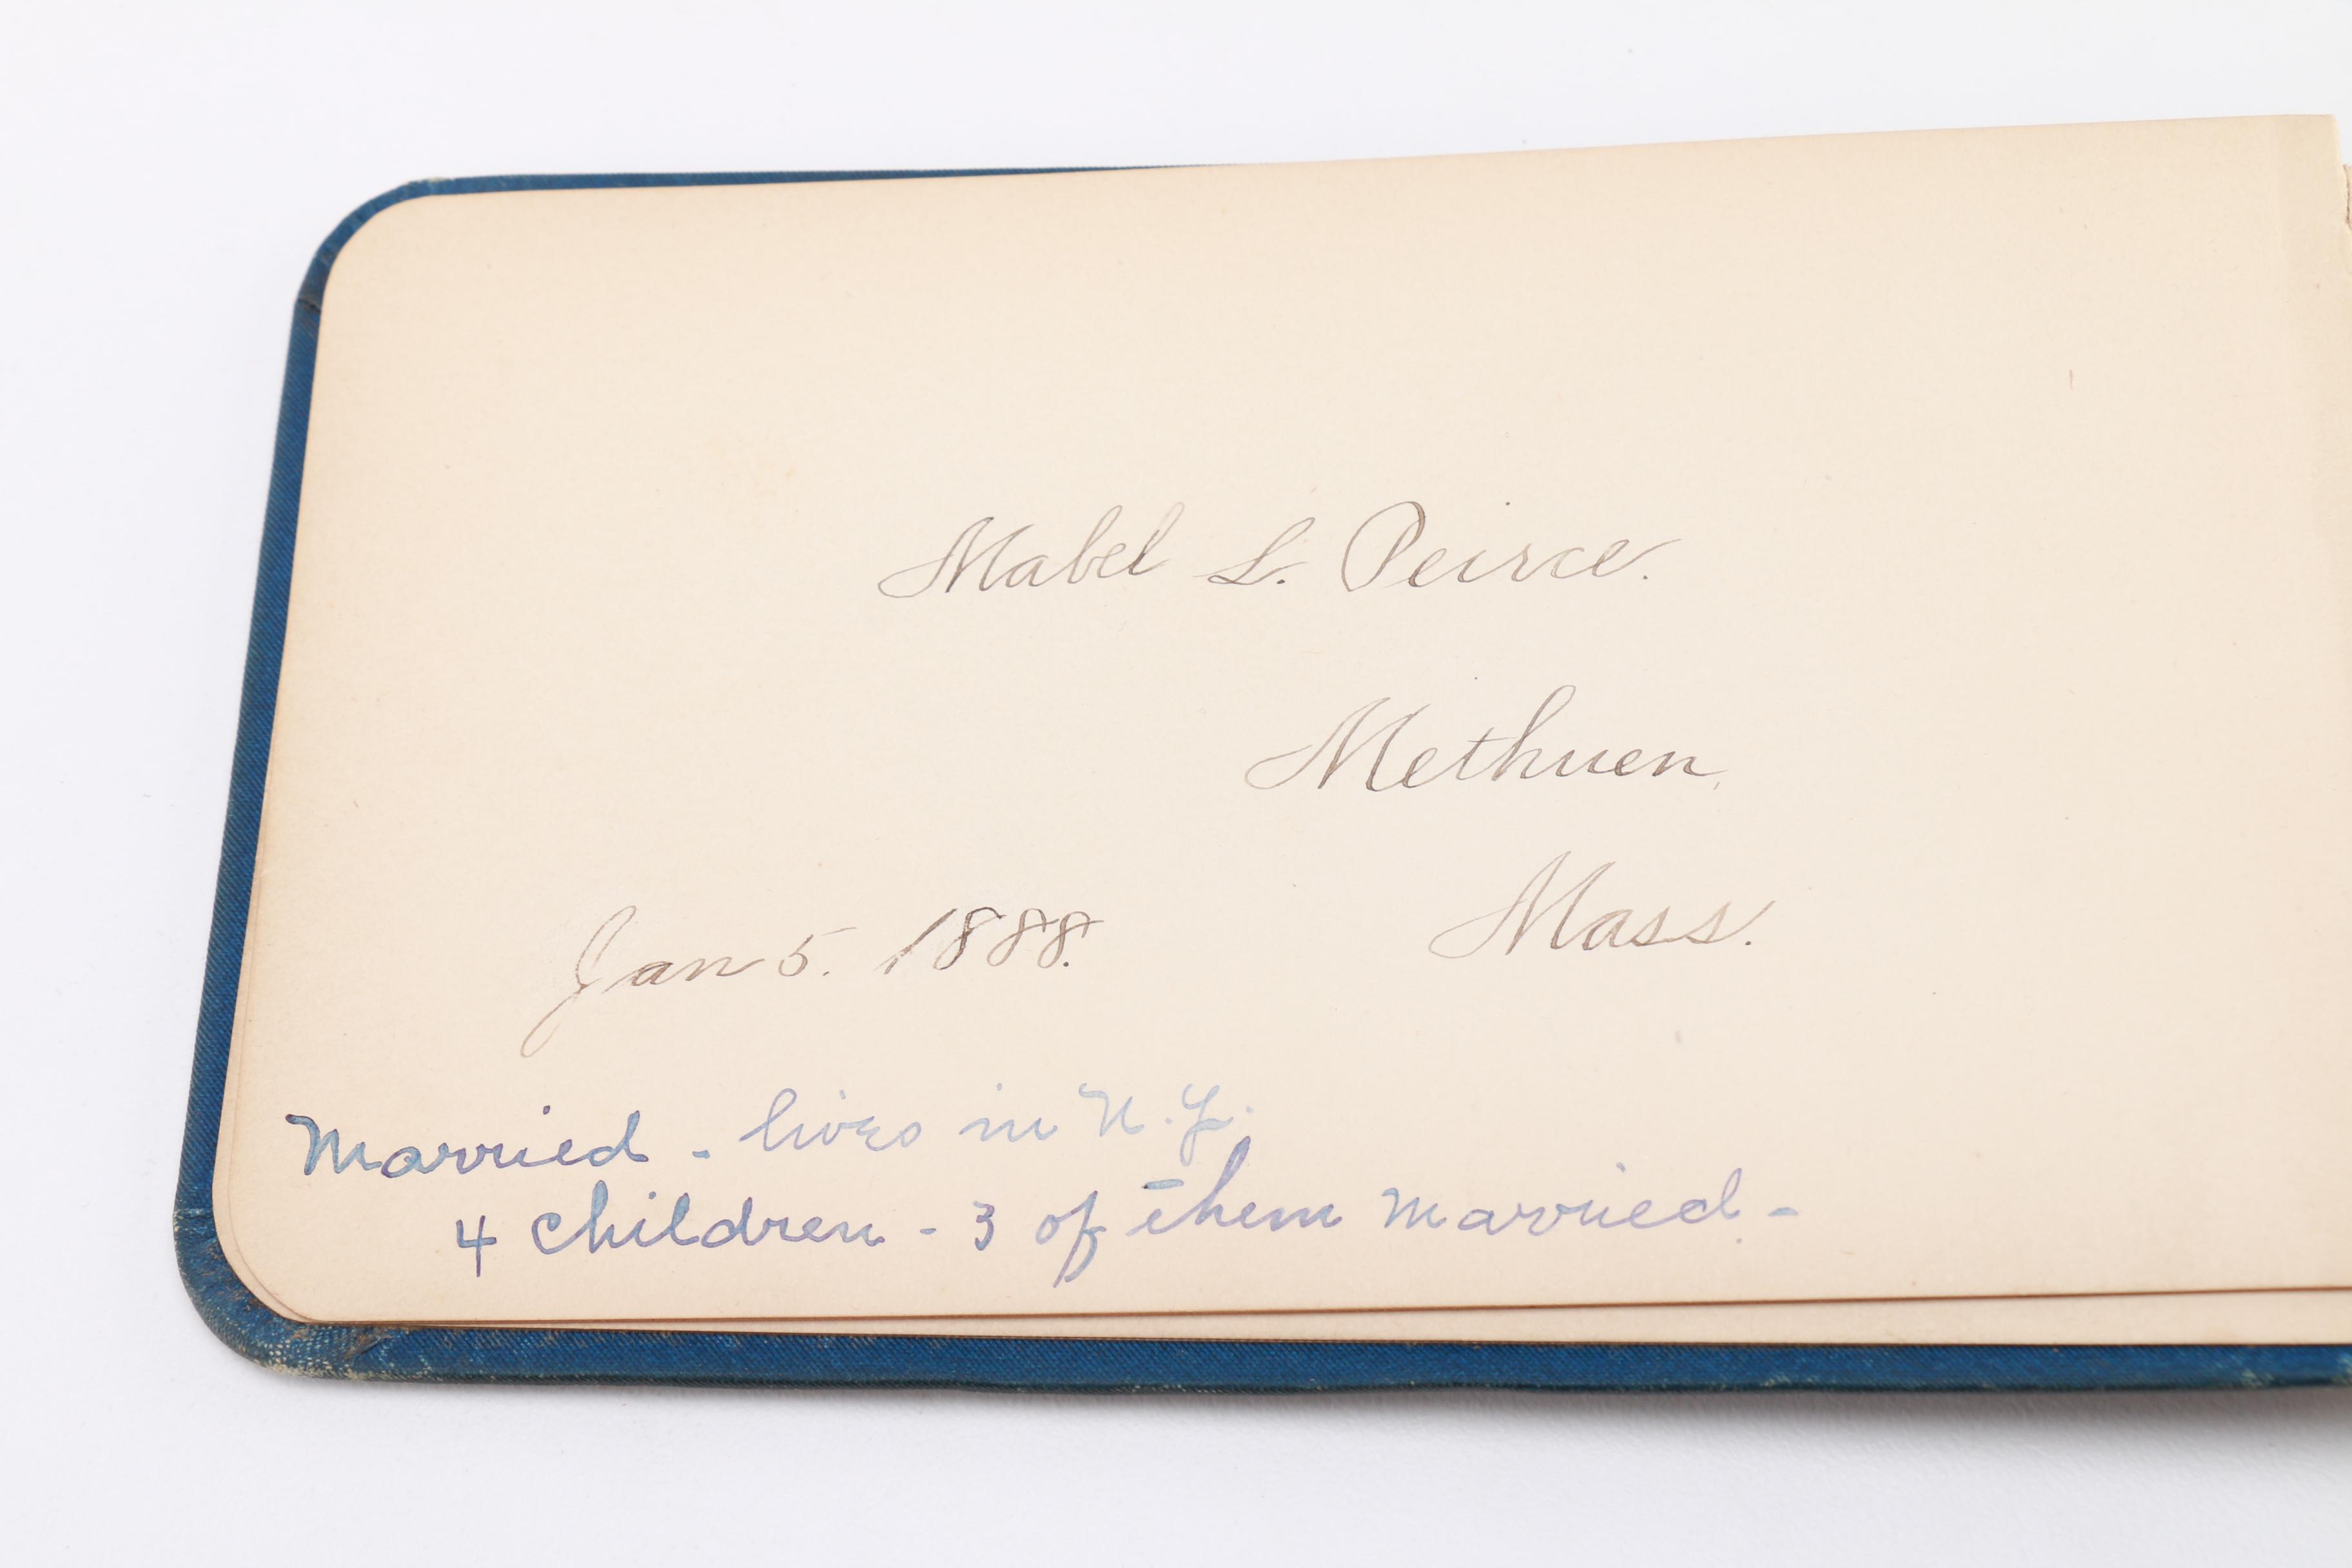 Mabel L. Peirce.
Methuen,
Mass.
Jan 5. 1888.
Married - lives in N.Y.
4 children - 3 of them married -